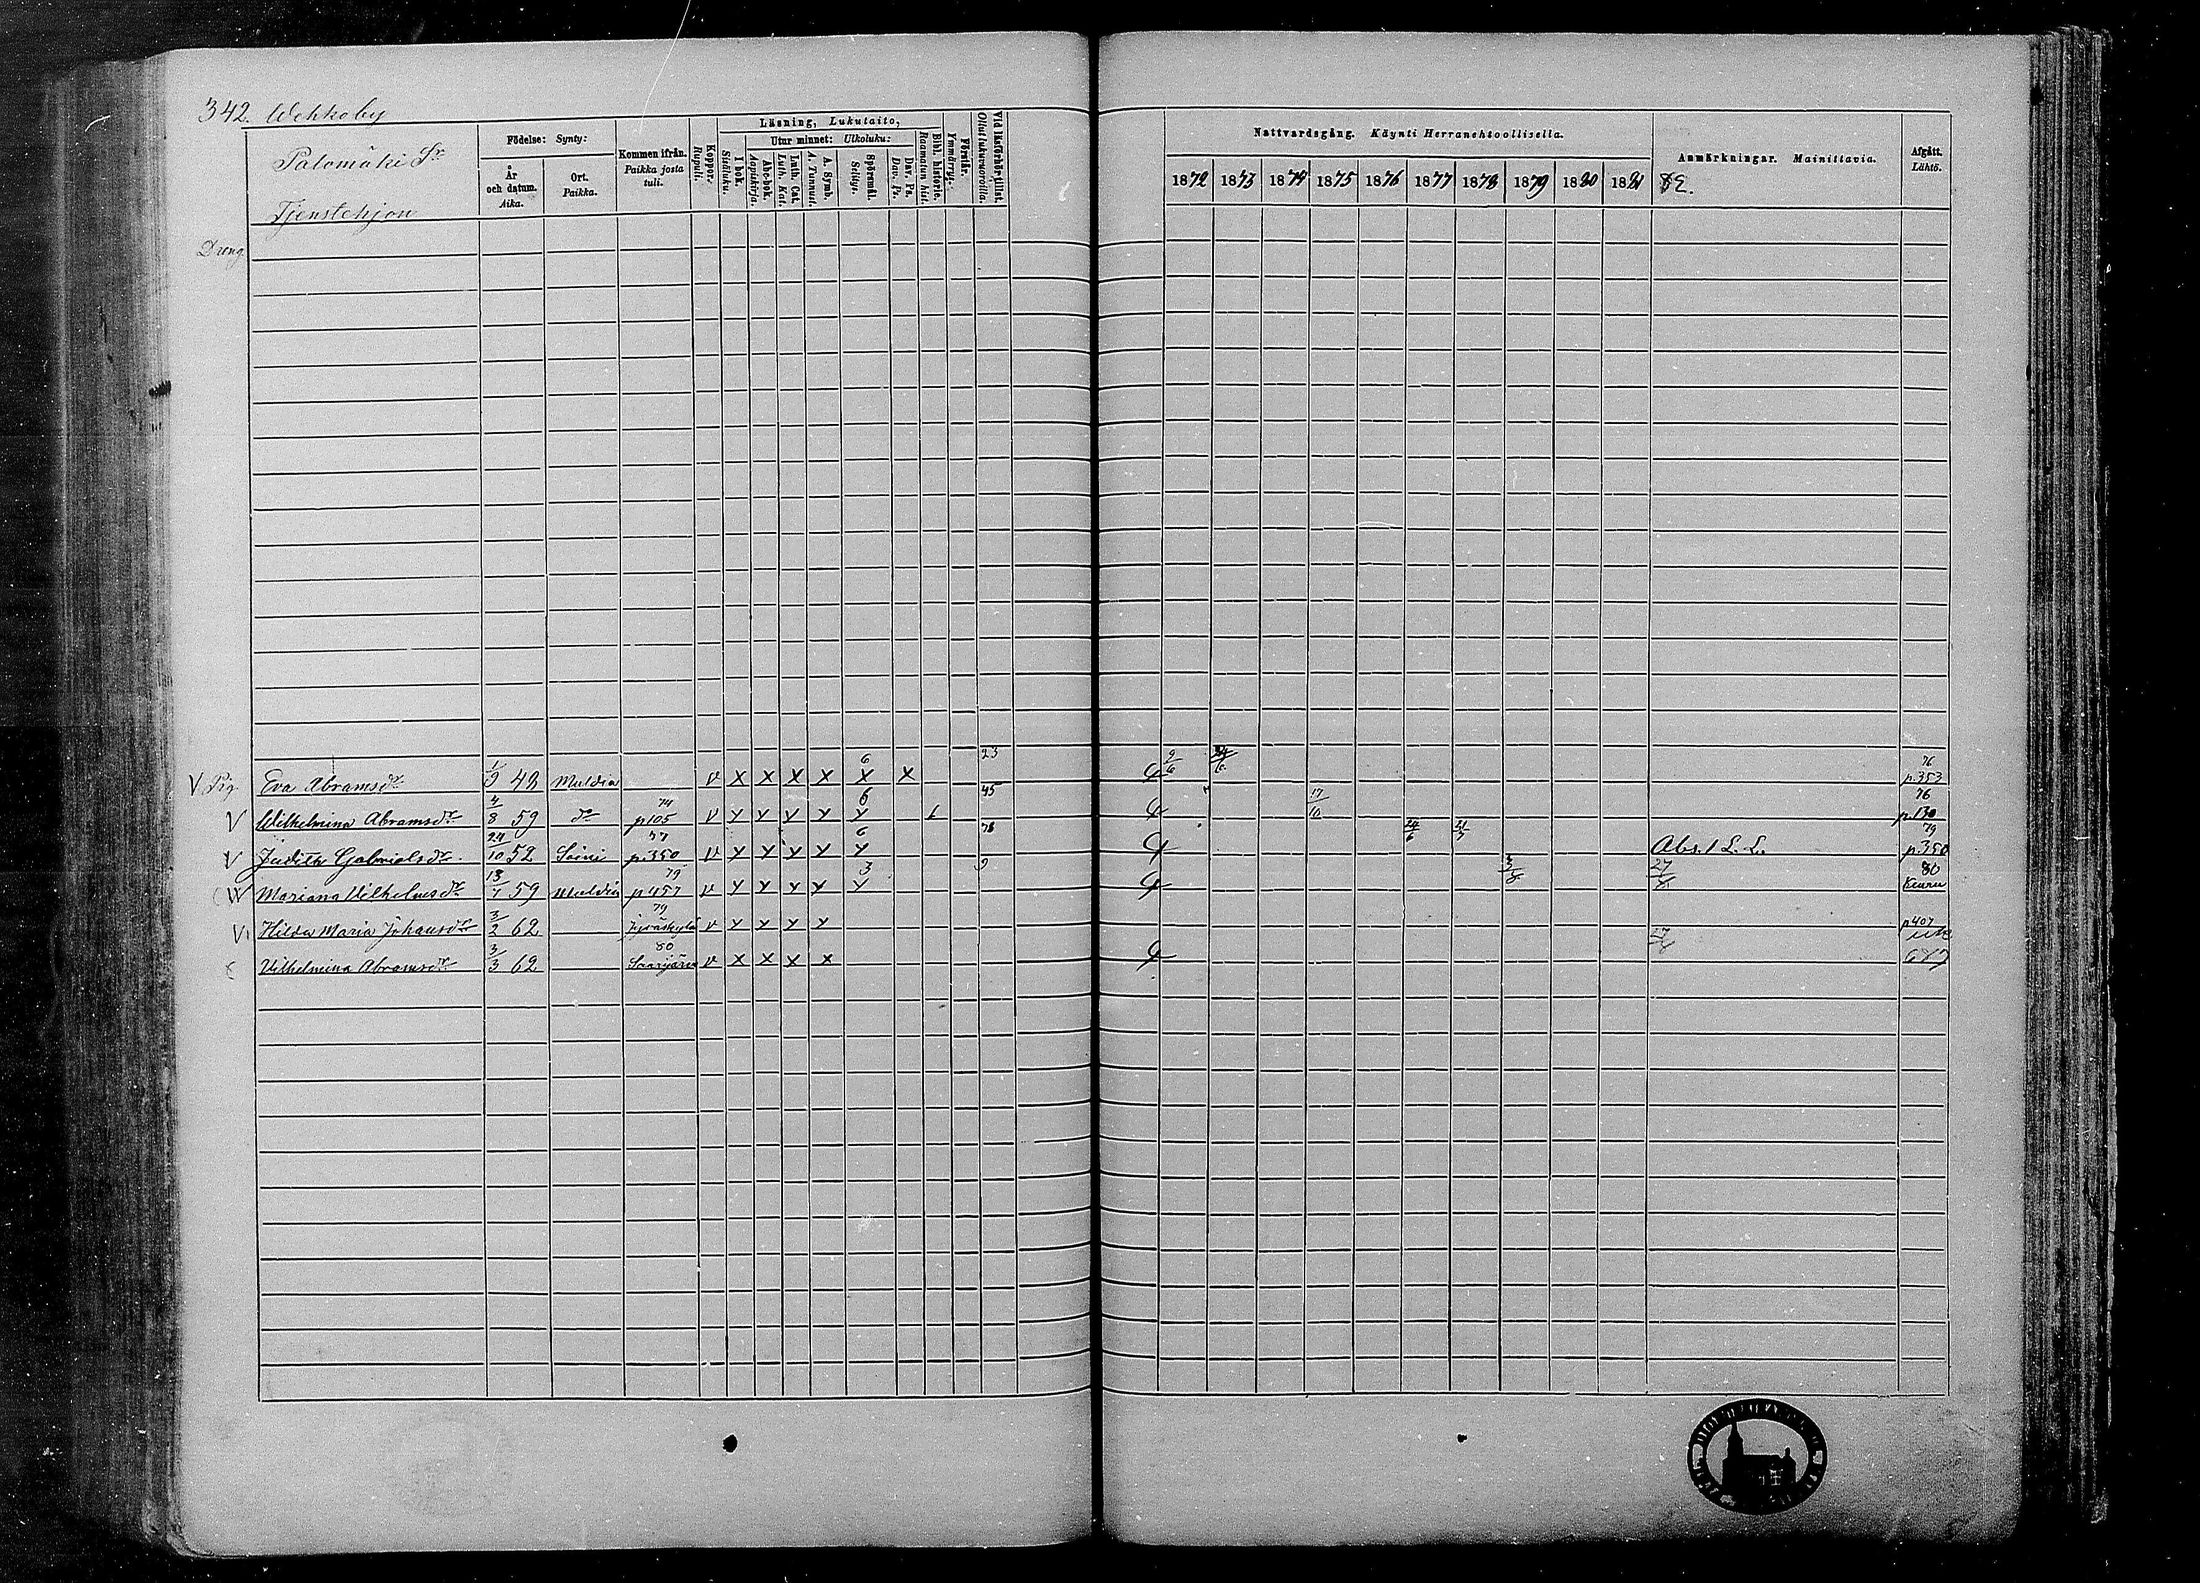 342. Wehkoby
Palomäki Sr
Tjenstehjon
Födelse: Synty:
År och datum. Aika.
Ort. Paikka.
Kommen ifrån. Paikka josta tuli.
Koppor. Rupuli.
Läsning, Lukutaito,
I bok. Sisäluku.
Utur minnet: Ulkoluku:
Abc-bok. Aapiskirja.
Luth. Cat. Luth. Kat.
A. Symb. A. Tunnust.
Spörsmål. Selitys.
Dav. Ps. Dav. Ps.
Bibl. historie. Raamatun hist.
Förstår. Ymmärrys.
Vid läsförhör tillst. Ollut lukuvuoroilla.
Nattvardsgång. Käynti Herranehtoollisella.
1872 1873 1874 1875 1876 1877 1878 1879 1880 1881
Anmärkningar. Mainittavia.
Afgått. Lähtö.
Dreng
V Pig. Eva Abramsdr 43 Muldia v x x x x 6 x x 23 2/6 76 p.353
V Wilhelmina Abramsdr 4/8 59 do 74 p105 v y y y y 6 y 45 17/10 76 p.130
V Judith Gabrielsdr. 24/10 52 Soini 77 p.350 v y y y y 6 y 24/6 21/7 Abs. 1 L. L. 79 p.350
Mariana Wilhelmsdr 13/1 59 Muldia 79 p457 v y y y y 3 y 9 3/8 80 Keuru
V. Hilda Maria Johansdr 3/2 62 79 Jyväskylä v y y y y p407
Wilhelmina Abramsdr 3/3 62 80 Saarijärvi v x x x x